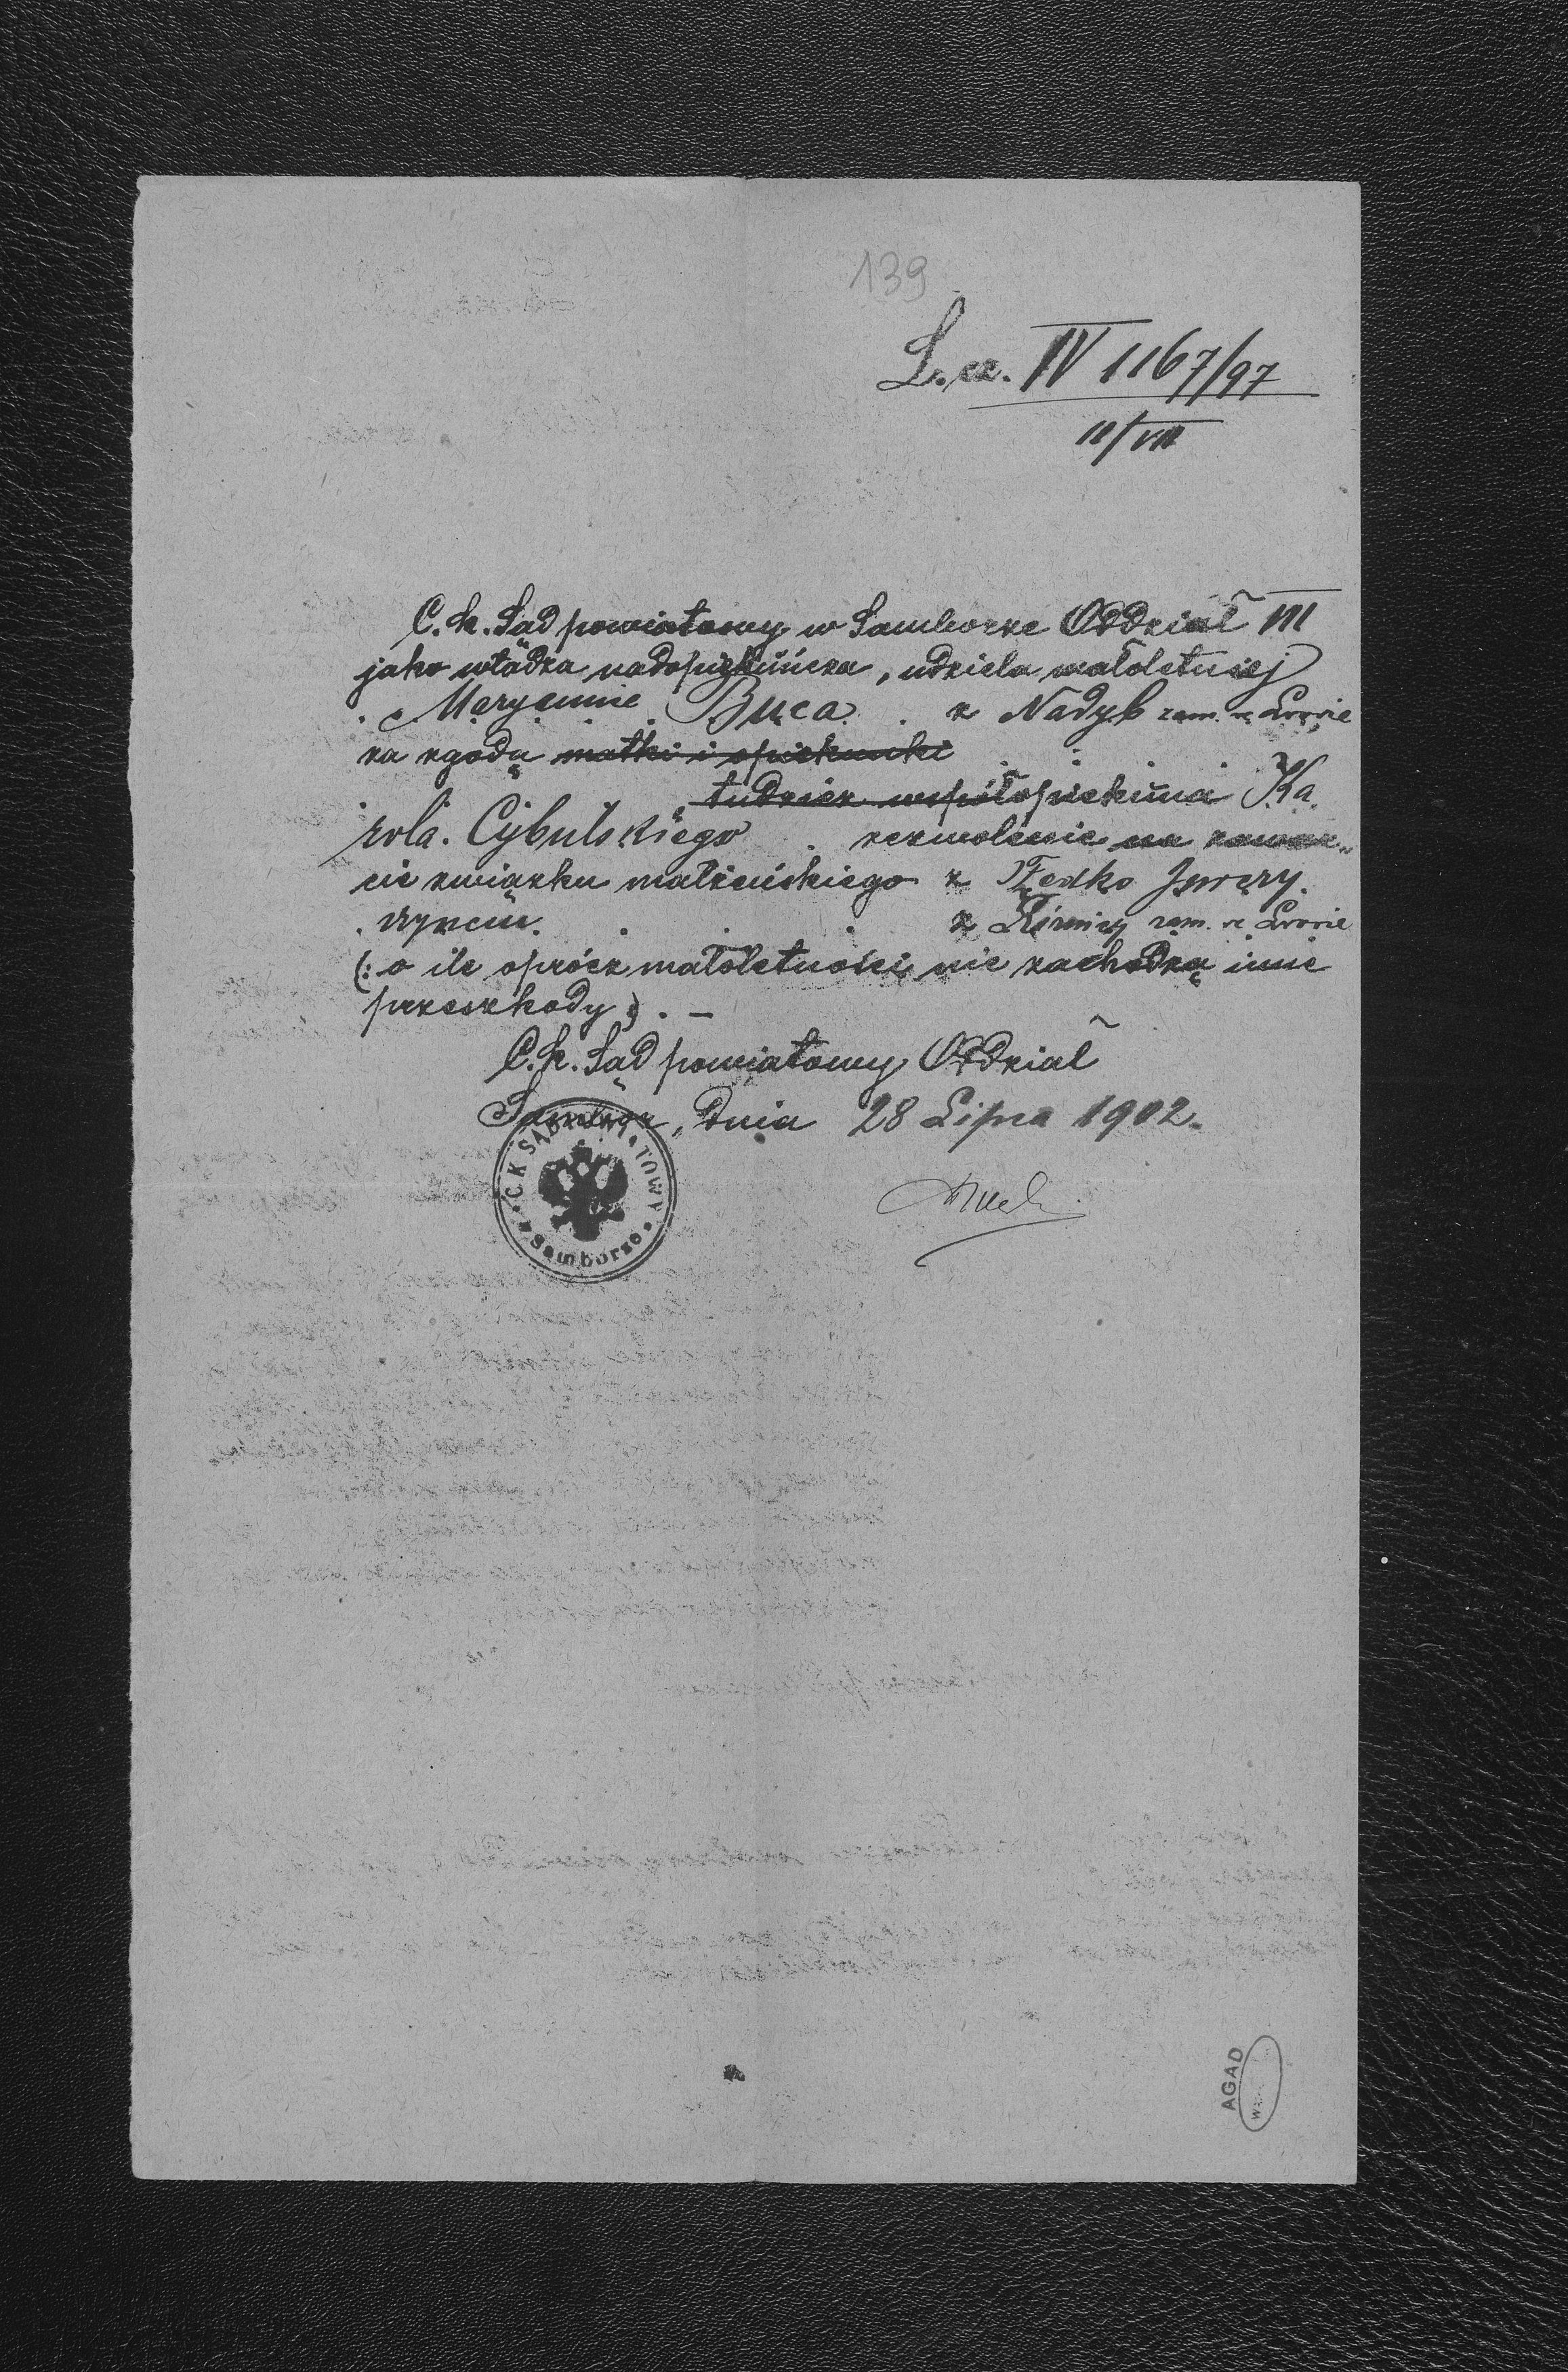 139
L. cz. IV 1167/97
11/VII
C. k. Sąd powiatowy w Samborze Oddział III
jako władza nadopiekuńcza, udziela małoletniej
Maryannie Buca z Nadyb zam. we Lwowie
za zgodą matki i opiekunki
tudzież współopiekuna Ka
rola Cybulskiego zezwolenie na zawar-
cie związku małżeńskiego z Fedko
z zam. we Lwowie
(: o ile oprócz małoletności nie zachodzą inne
przeszkody :) . —
C. k. Sąd powiatowy Oddział
Sambor, dnia 28 Lipca 1902.
C K SĄD POWIATOWY
w Samborze
AGAD